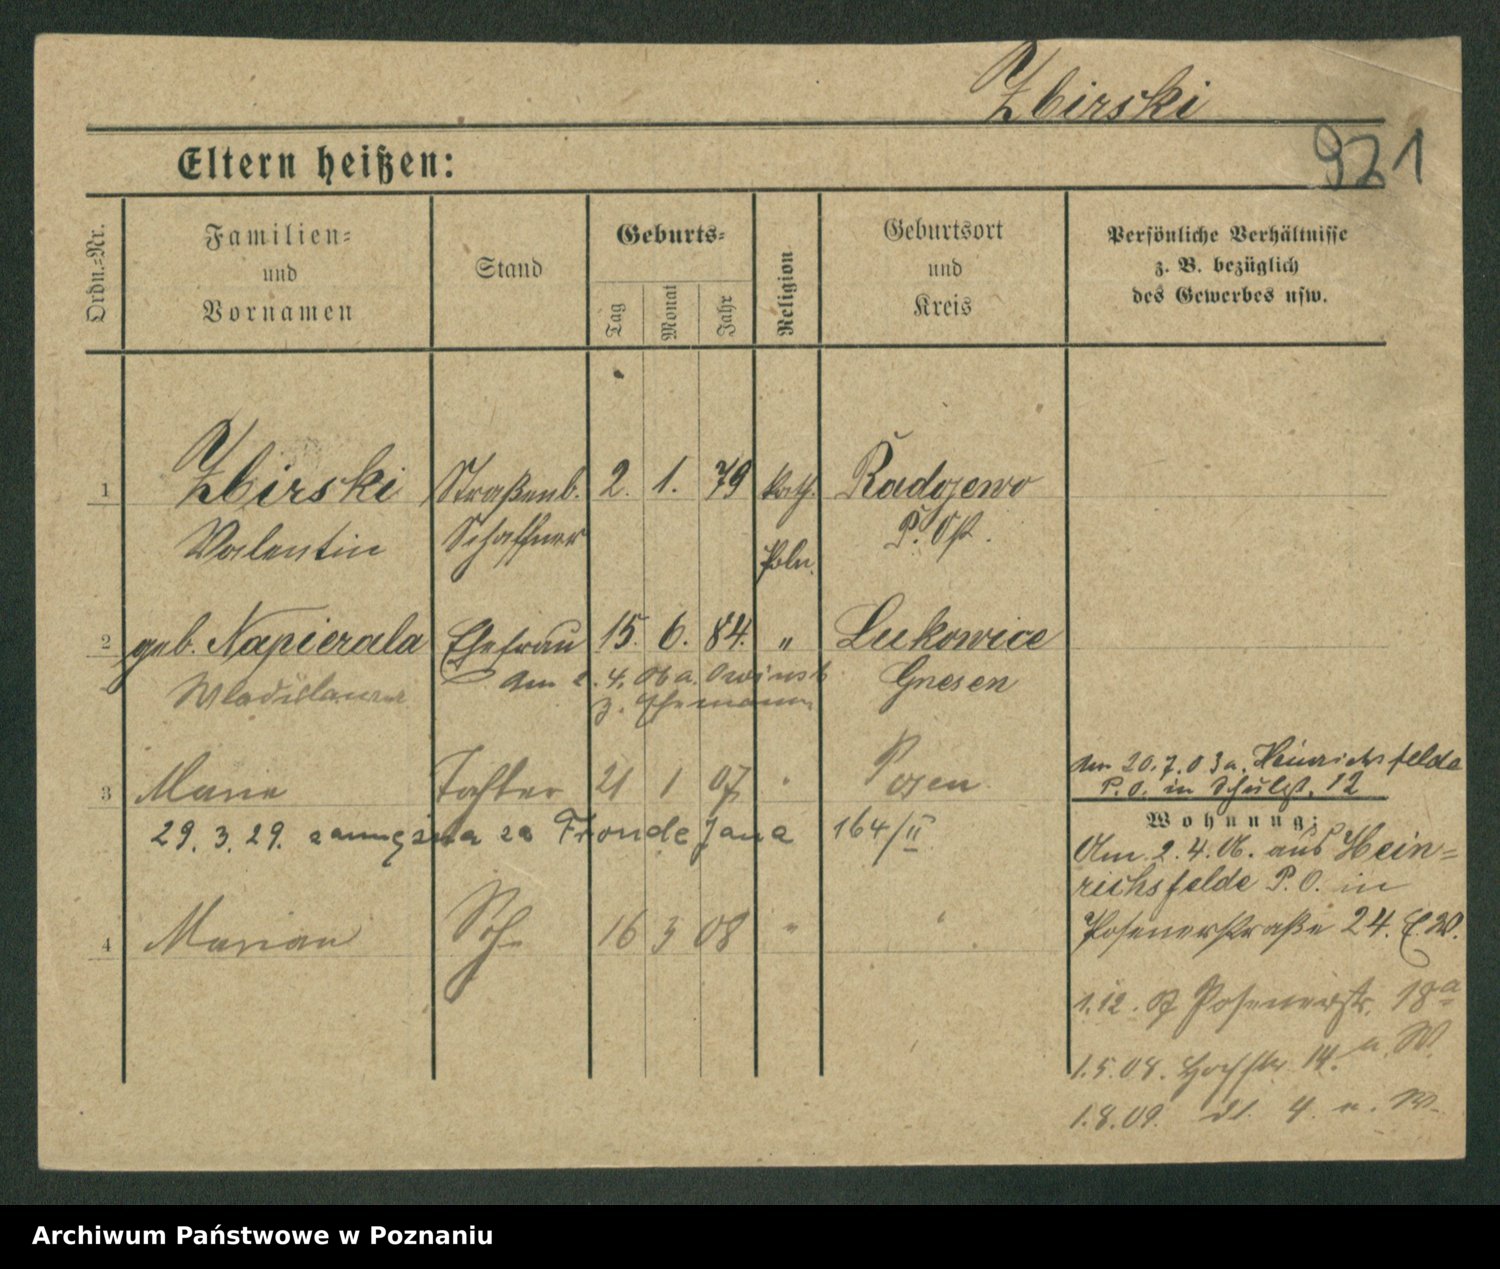 Zbirski
921
Eltern heißen:
Ordn.-Nr.
Familien-
und
Vornamen
Stand
Geburts-
Tag
Monat
Jahr
Religion
Geburtsort
und
Kreis
Persönliche Verhältnisse
z. B. bezüglich
des Gewerbes usw.
1 Zbirski Straßenb. 2. 1. 79 kath. Radojewo
Valentin Schaffner Poln. P. Ost.
2 geb. Napierala Ehefrau 15. 6. 84. " Lukowice
Wladislawa Gnesen
am 2. 4. 06 a. Owinsk
z. Ehemann
3 Marie Tochter 21 1 07 " Posen
29. 3. 29. za Jana 164/II
4 Marian S. 16 3 08 " "
am 20.7.03 a. Heinrichsfelde
P. O. in Schulst. 12
Wohnung:
Am 2. 4. 06. aus Hein-
richsfelde P. O. in
Posenerstraße 24. E. W.
1.12. 07 Posenerstr. 18a
1.5.08. 14. a. W.
1.8.09. 4 W.
Archiwum Państwowe w Poznaniu